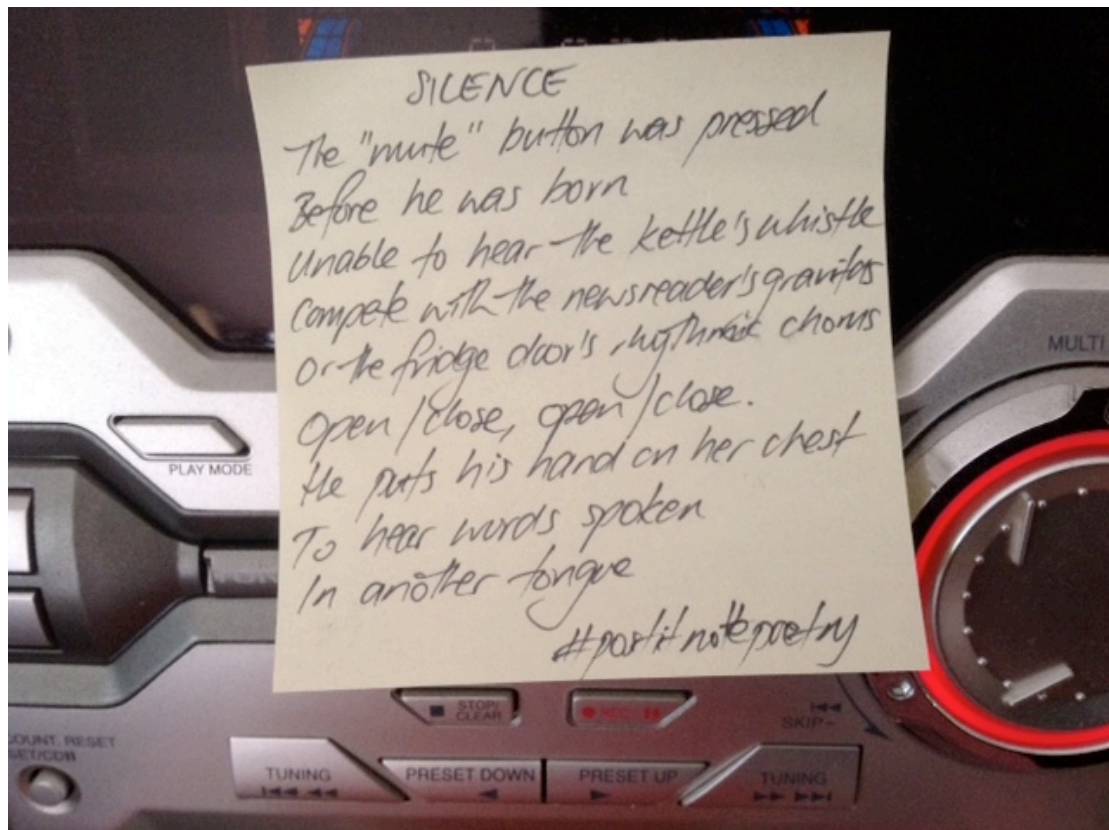 SILENCE
The "mute" button was pressed
Before he was born
Unable to hear the kettle's whistle
Compete with the newsreader's gravitas
Or the fridge door's rhythmic chorus
Open/close, open/close.
He puts his hand on her chest
To hear words spoken
In another tongue
#postitnotepoetry
MULTI
PLAY MODE
STOP/
CLEAR
REC/
SKIP-
COUNT. RESET
SET/CDB
TUNING
PRESET DOWN
PRESET UP
TUNING